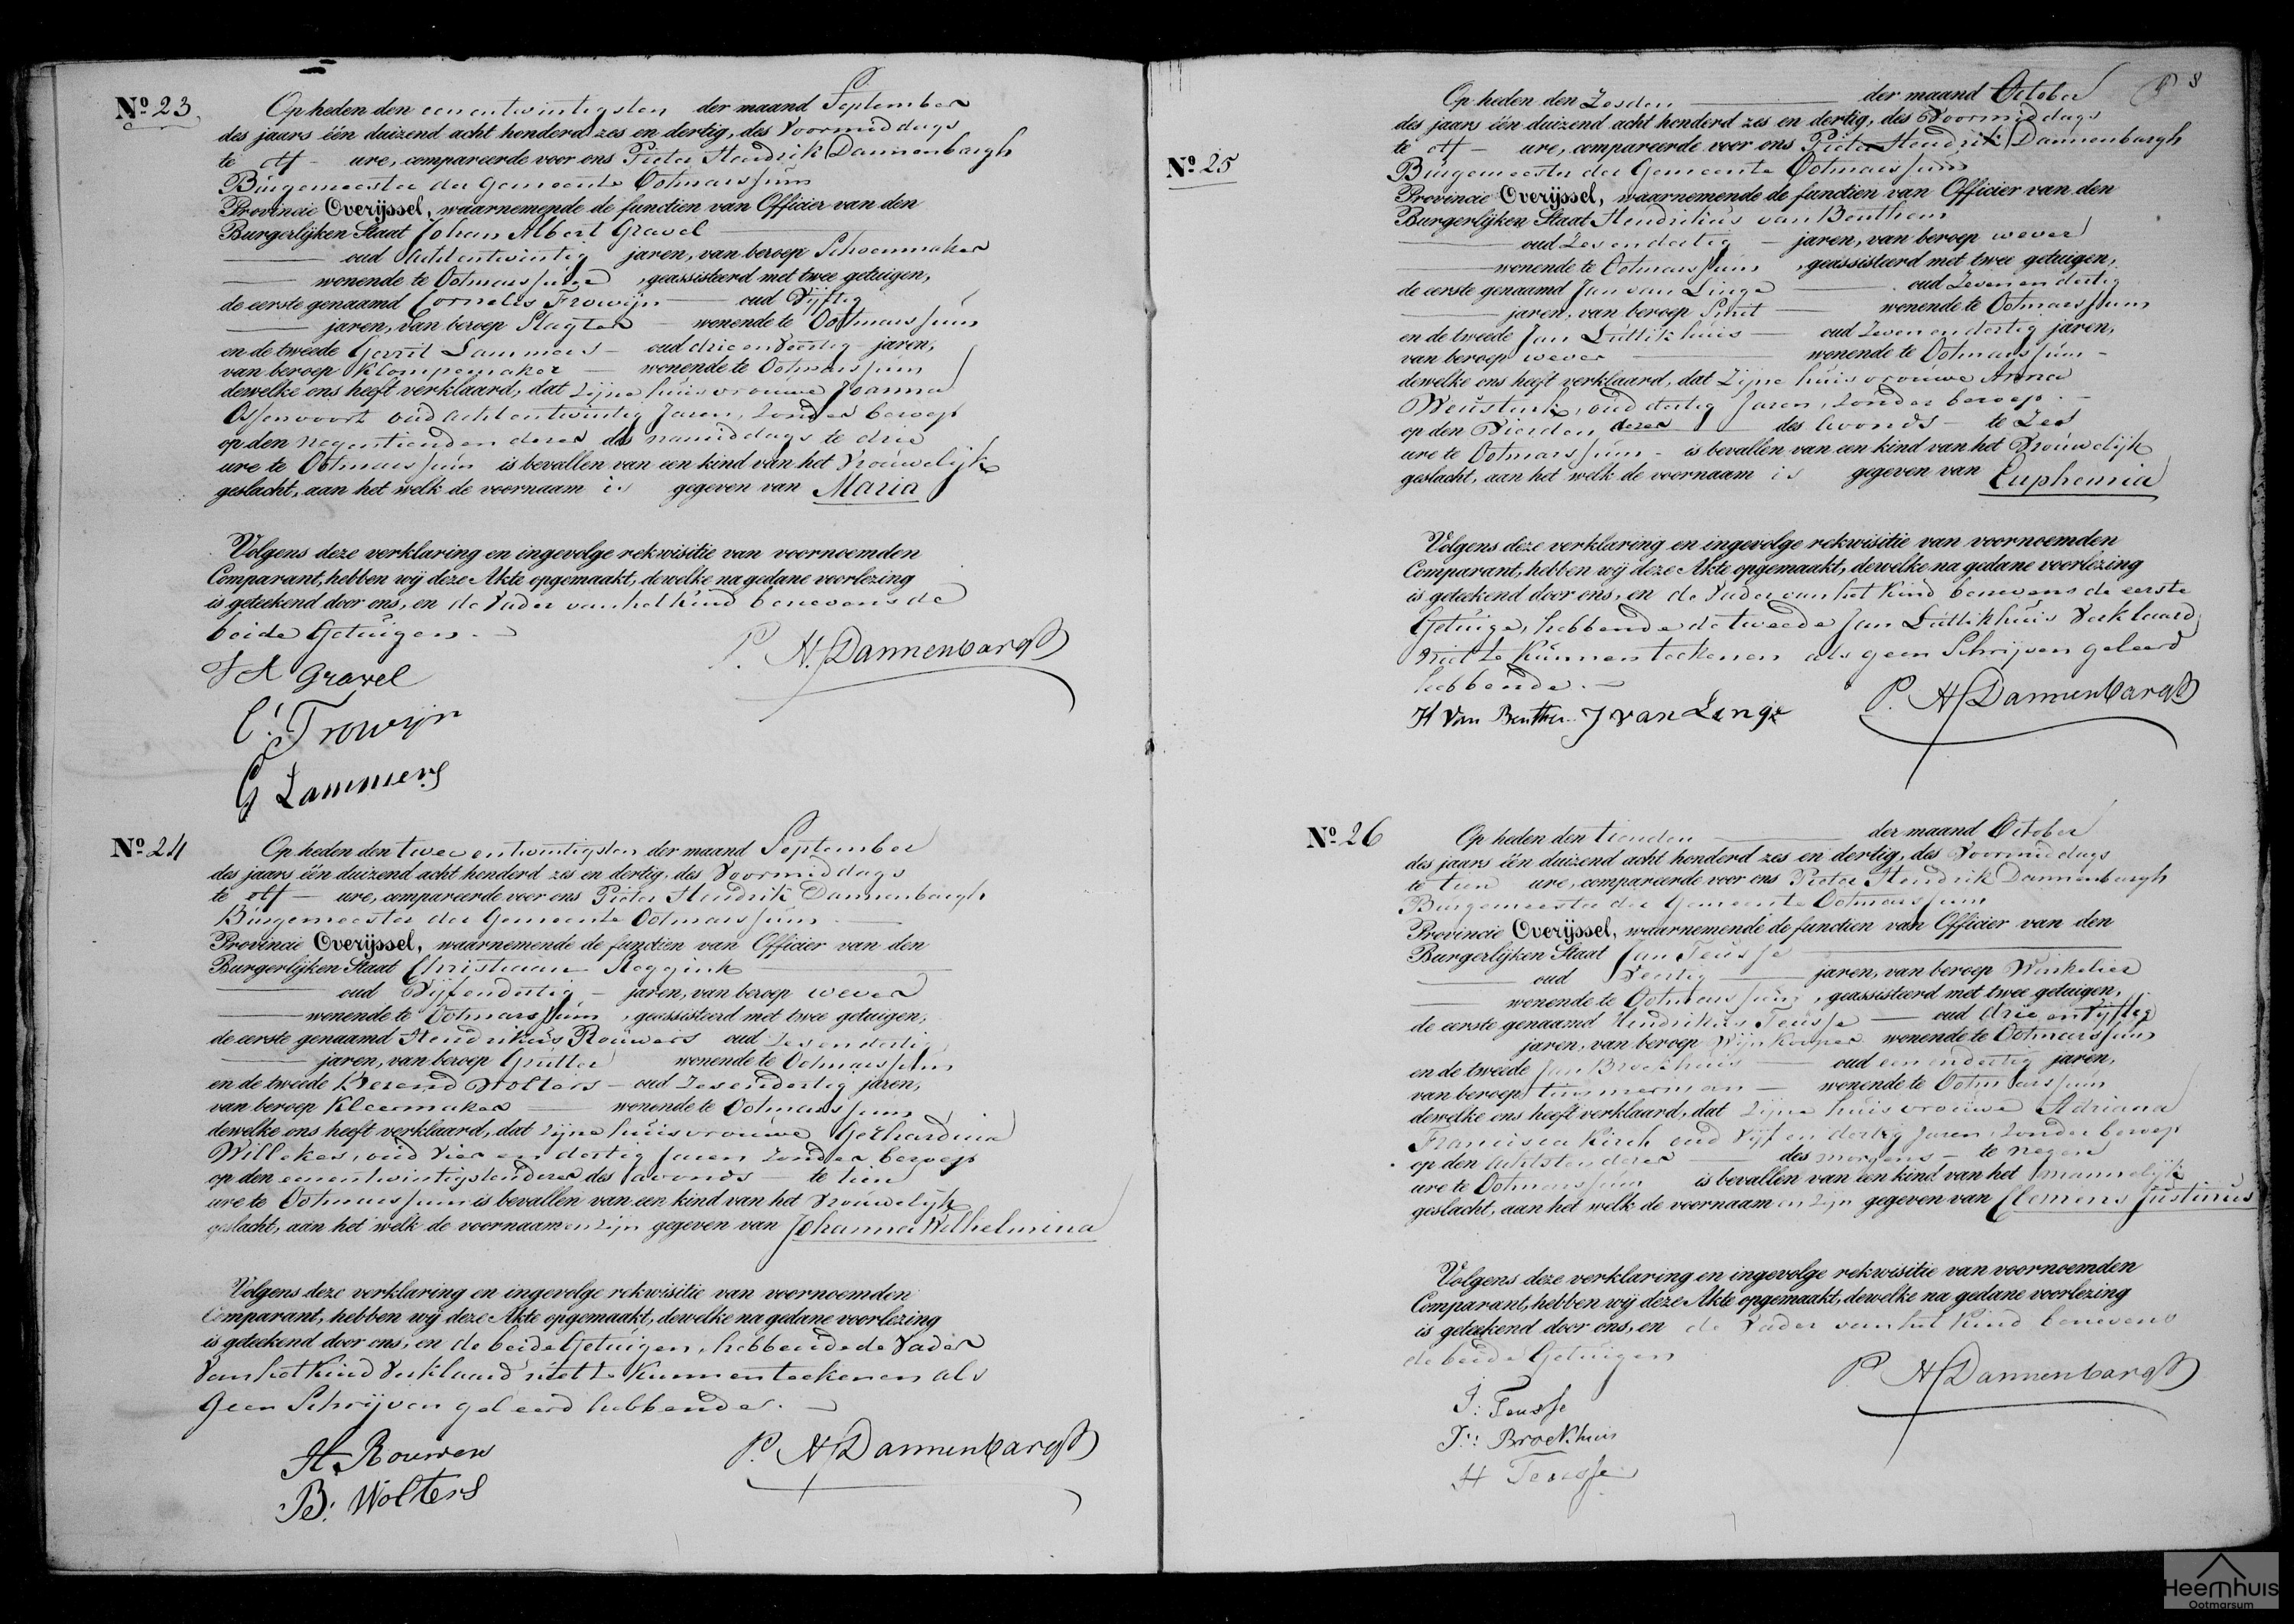 No. 23.
Op heden den eenentwintigsten der maand September
des jaars één duizend acht honderd zes en dertig, des Voormiddags
te elf – ure, compareerde voor ons Pieter Hendrik Dannenbargh
Burgemeester der Gemeente Ootmarssum
Provincie Overijssel, waarnemende de functien van Officier van den
Burgerlijken Staat Johan Albert Gravel
oud Achtentwintig jaren, van beroep Schoenmaker
wonende te Ootmarssum, geassisteerd met twee getuigen,
de eerste genaamd Cornelis Trowijn oud Vijftig
jaren, van beroep Slagter – wonende te Ootmarssum
en de tweede Gerrit Lammers – oud drie en Veertig jaren,
van beroep Klompemaker – wonende te Ootmarssum
dewelke ons heeft verklaard, dat zijne huisvrouwe Joanna
Ossenvoort oud acht entwintig Jaren, zonder beroep
op den negentienden dezer des namiddags te drie
ure te Ootmarssum is bevallen van een kind van het Vrouwelijk
geslacht, aan het welk de voornaam is gegeven van Maria
Volgens deze verklaring en ingevolge rekwisitie van voornoemden
Comparant, hebben wij deze Akte opgemaakt, dewelke na gedane voorlezing
is geteekend door ons, en de Vader van het Kind benevens de
beide Getuigen. –
J A Gravel
P. H. Dannenbargh
C. Trowijn
G Lammers
No. 24
Op heden den twee entwintigsten der maand September
des jaars één duizend acht honderd zes en dertig, des Voormiddags
te elf – ure, compareerde voor ons Pieter Hendrik Dannenbargh
Burgemeester der Gemeente Ootmarssum
Provincie Overijssel, waarnemende de functien van Officier van den
Burgerlijken Staat Christiaan Reggink
oud Vijfendertig – jaren, van beroep wever
wonende te Ootmarssum, geassisteerd met twee getuigen,
de eerste genaamd Hendrikus Rouwers oud Zesendertig
jaren, van beroep wonende te Ootmarssum
en de tweede Berend Wolters – oud Zesendertig jaren,
van beroep Kleermaker – wonende te Ootmarssum
dewelke ons heeft verklaard, dat zijne huisvrouwe Gerhardina
Willekes, oud Vier en dertig Jaren zonder beroep
op den eenentwintigsten dezer des avonds – te tien
ure te Ootmarssum is bevallen van een kind van het Vrouwelijk
geslacht, aan het welk de voornaamen zijn gegeven van Johanna Wilhelmina
Volgens deze verklaring en ingevolge rekwisitie van voornoemden
Comparant, hebben wij deze Akte opgemaakt, dewelke na gedane voorlezing
is geteekend door ons, en de beide Getuigen, hebbende de Vader
van het Kind Verklaard niet te Kunnen teekenen als
Geen Schrijven geleerd hebbende. –
H. Rouwers
P. H Dannenbargh
B. Wolters
8
No. 25
Op heden den Zesden der maand October
des jaars één duizend acht honderd zes en dertig, des Voormiddags
te elf – ure, compareerde voor ons Pieter Hendrik Dannenbargh
Burgemeester der Gemeente Ootmarssum
Provincie Overijssel, waarnemende de functien van Officier van den
Burgerlijken Staat Hendrikus van Benthem
oud Zesendertig – jaren, van beroep wever
wonende te Ootmarssum, geassisteerd met twee getuigen,
de eerste genaamd Jan van Linge oud Zevenendertig
jaren, van beroep Smit – wonende te Ootmarssum
en de tweede Jan Luttikhuis – oud Zevenendertig jaren,
van beroep wever wonende te Ootmarssum –
dewelke ons heeft verklaard, dat zijne huisvrouwe Anna
oud dertig Jaren, zonder beroep. –
op den Vierden dezer des Avonds – te Zes
ure te Ootmarssum – is bevallen van een kind van het Vrouwelijk
geslacht, aan het welk de voornaam is gegeven van Euphemia
Volgens deze verklaring en ingevolge rekwisitie van voornoemden
Comparant, hebben wij deze Akte opgemaakt, dewelke na gedane voorlezing
is geteekend door ons, en de Vader van het Kind benevens de eerste
Getuige, hebbende de tweede Jan Luttikhuis Verklaard
niet te Kunnen teekenen als geen Schrijven geleerd
hebbende. –
H van Benthem J van Linge
P. H Dannenbargh
No. 26
Op heden den tienden der maand October
des jaars één duizend acht honderd zes en dertig, des Voormiddags
te tien ure, compareerde voor ons Pieter Hendrik Dannenbargh
Burgemeester der Gemeente Ootmarssum
Provincie Overijssel, waarnemende de functien van Officier van den
Burgerlijken Staat Jan Teusse
oud Veertig jaren, van beroep Winkelier
wonende te Ootmarssum, geassisteerd met twee getuigen,
de eerste genaamd Hendrikus Teusse – oud drie en Vijftig
jaren, van beroep Wijnkooper wonende te Ootmarssum
en de tweede Jan Broekhuis oud een endertig jaren,
van beroep timmerman – wonende te Ootmarssum
dewelke ons heeft verklaard, dat zijne huisvrouwe Adriana
Francisca Kirch oud Vijf en dertig Jaren, zonder beroep
op den achtsten dezer des morgens – te negen
ure te Ootmarssum is bevallen van een kind van het mannelijk
geslacht, aan het welk de voornaamen zijn gegeven van Clemens Justinus
Volgens deze verklaring en ingevolge rekwisitie van voornoemden
Comparant, hebben wij deze Akte opgemaakt, dewelke na gedane voorlezing
is geteekend door ons, en de Vader van het Kind benevens
de beide Getuigen
P. H Dannenbargh
J: Teusse
J: Broekhuis
H Teusse
Heemhuis
Ootmarsum